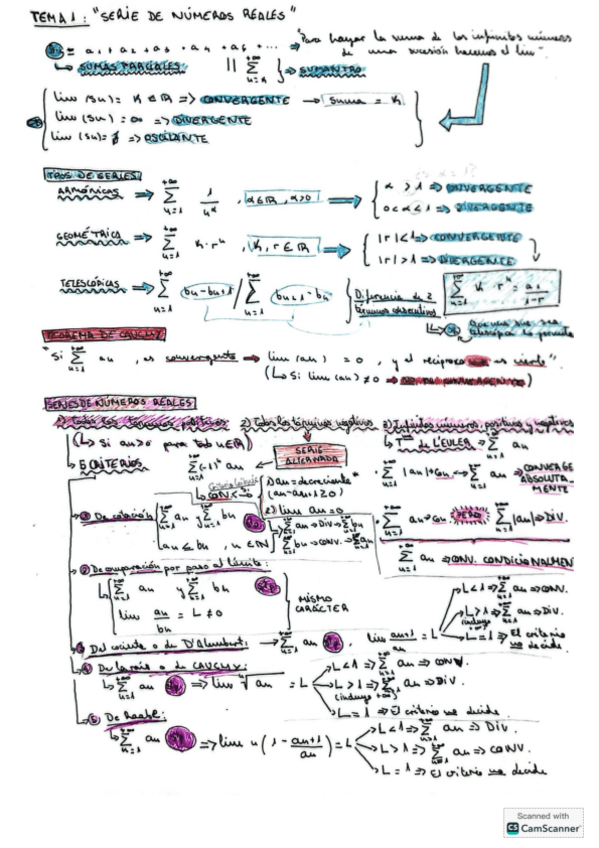 TEMA 1: "SERIE DE NÚMEROS REALES"
= a₁ + a₂ + a₃ + a₄ + a₅ + ... => "Para hayar la suma de los infinitos números de una sucesión hacemos el lim"
↳ SUMAS PARCIALES || ∑ => SUMATORIO
lim (Sn) = K ∈ ℝ => CONVERGENTE → Suma = K
lim (Sn) = ∞ => DIVERGENTE
lim (Sn) = ∄ => OSCILANTE
TIPOS DE SERIES
ARMÓNICAS => ∑ 1/n^α , α ∈ ℝ, α>0 => α > 1 => CONVERGENTE
0<α≤1 => DIVERGENTE
GEOMÉTRICA => ∑ K·rⁿ , K, r ∈ ℝ => |r|<1 => CONVERGENTE
|r|>1 => DIVERGENTE
∑ K·rⁿ = a₁/1-r
TELESCÓPICAS => ∑ bn-bn+1 / ∑ bn+1-bn Diferencia de 2 términos consecutivos
TEOREMA DE CAUCHY
"Si ∑ an , es convergente => lim (an) = 0 , y el reciproco no es cierto"
(↳ Si lim (an) ≠ 0 => )
SERIES DE NÚMEROS REALES
1) Todos los términos positivos 2) Todos los términos negativos 3) Infinitos números, positivos y negativos
(↳ Si an>0 para todo n∈ℝ)
↳ 5 CRITERIOS
SERIE ALTERNADA
∑ (-1)ⁿ an
CONV <=> 1) an = decreciente
(an-an+1 ≥ 0)
2) lim an = 0
↳ T de L'EULER → ∑ an
∑ |an| → Con => ∑ an => CONVERGE ABSOLUTAMENTE
∑ an → Con PERO ∑ |an| → DIV.
∑ an → CONV. CONDICIONALMEN
① De
∑ an y ∑ bn
an ≤ bn , n ∈ ℕ
∑ an → DIV → ∑ bn
∑ bn → CONV. → ∑ an
② De comparación por paso al límite:
∑ an y ∑ bn
lim an/bn = L ≠ 0
MISMO CARÁCTER
③ Del cociente o de D'Alembert: → ∑ an lim an+1/an = L
L < 1 => ∑ an => CONV.
L > 1 => ∑ an => DIV.
(incluye +∞)
L = 1 => El criterio no decide.
④ De la raíz o de CAUCHY:
↳ ∑ an => lim ⁿ√an = L
L < 1 => ∑ an => CONV.
L > 1 => ∑ an => DIV.
(incluye +∞)
L = 1 => El criterio no decide
⑤ De Raabe:
↳ ∑ an => lim n (1 - an+1/an) = L
L < 1 => ∑ an => DIV.
L > 1 => ∑ an => CONV.
L = 1 => El criterio no decide
Scanned with
CS CamScanner